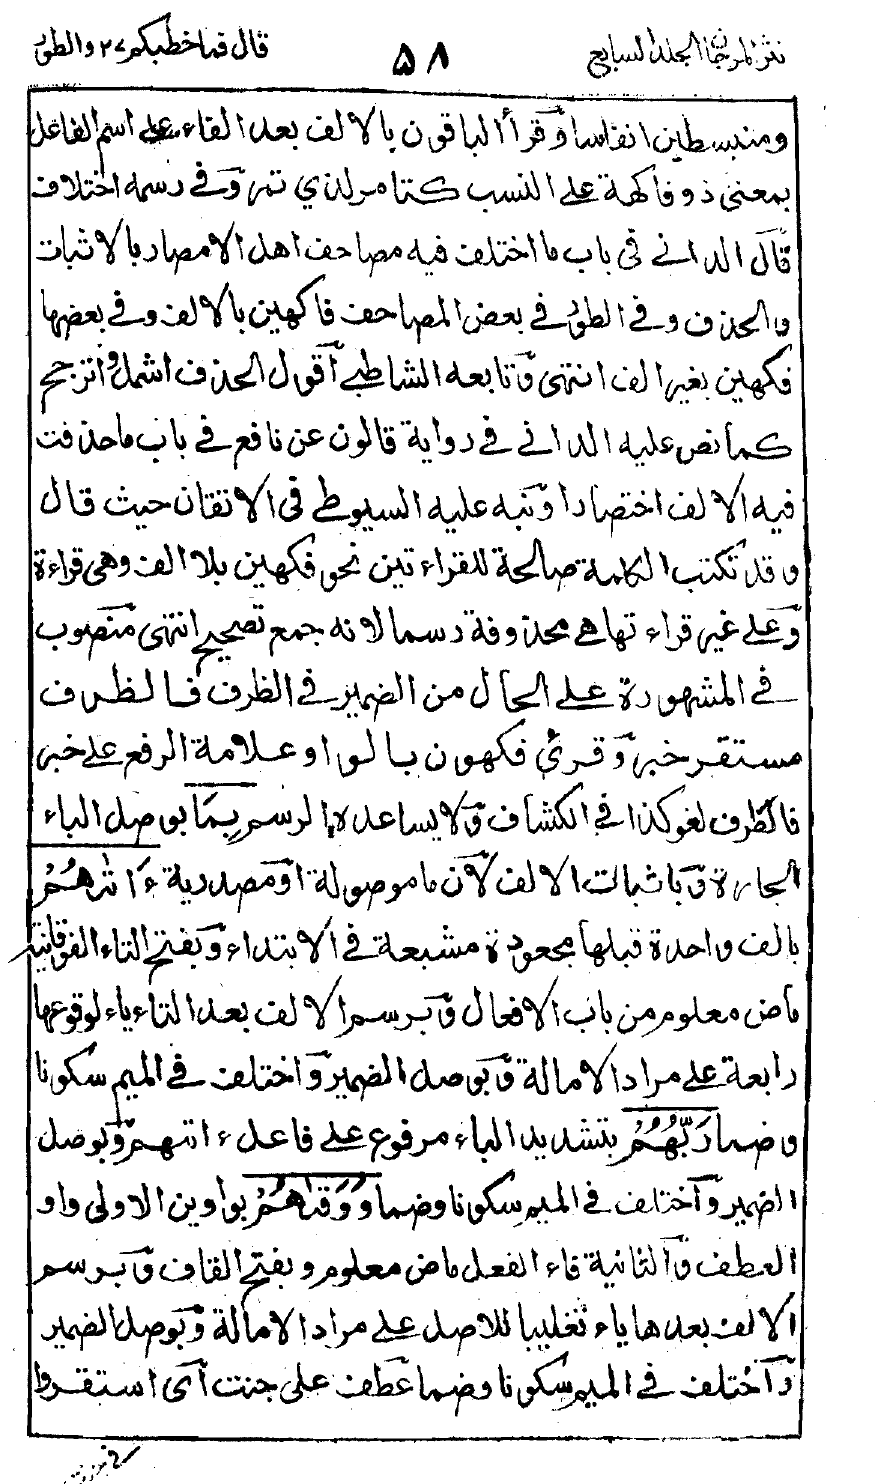 نثر المرجان المجلد السابع
۵۸
قال فما خطبكم ۲۷ والطور
ومنبسطين انفاسا وقرأ الباقون بالالف بعد الفاء على اسم الفاعل
بمعنى ذو فاكهة على النسب كتامر لذي تمر وفي رسمه اختلاف
قال الداني في باب ما اختلف فيه مصاحف اهل الامصار بالاثبات
والحذف وفي الطور في بعض المصاحف فاكهين بالالف وفي بعضها
فكهين بغير الف انتهى وتابعه الشاطبي أقول الحذف اشمل وأترجح
كما نص عليه الداني في رواية قالون عن نافع في باب ما حذفت
فيه الالف اختصارا ونبه عليه السيوطي في الاتقان حيث قال
وقد تكتب الكلمة صالحة للقراءتين نحو فكهين بلا الف وهي قراءة
وعلى غير قراءتها هي محذوفة رسما لانه جمع تصحيح انتهى منصوب
في المشهورة على الحال من الضمير في الظرف فالظرف
مستقر خبر وقرئ فكهون بالواو علامة الرفع على خبر
فالظرف لغو كذا في الكشاف ولا يساعده الرسم بِمَا بوصل الباء
الجارة وباثبات الالف لان ما موصولة او مصدرية ءَاتٰىهُمْ
بالف واحدة قبلها مجعودة مشبعة في الابتداء وبفتح التاء الفوقانية
ماض معلوم من باب الافعال وبرسم الالف بعد التاء ياء لوقوعها
رابعة على مراد الامالة وبوصل الضمير واختلف في الميم سكونا
وضما رَبُّهُمْ بتشديد الباء مرفوع على فاعل ءاتهم وبوصل
الضمير واختلف في الميم سكونا وضما وَوَقٰىهُمْ بواوين الاولى واو
العطف والثانية فاء الفعل ماض معلوم وبفتح القاف وبرسم
الالف بعدها ياء تغليبا للاصل على مراد الامالة وبوصل الضمير
واختلف في الميم سكونا وضما عطف على جنت أى استقروا